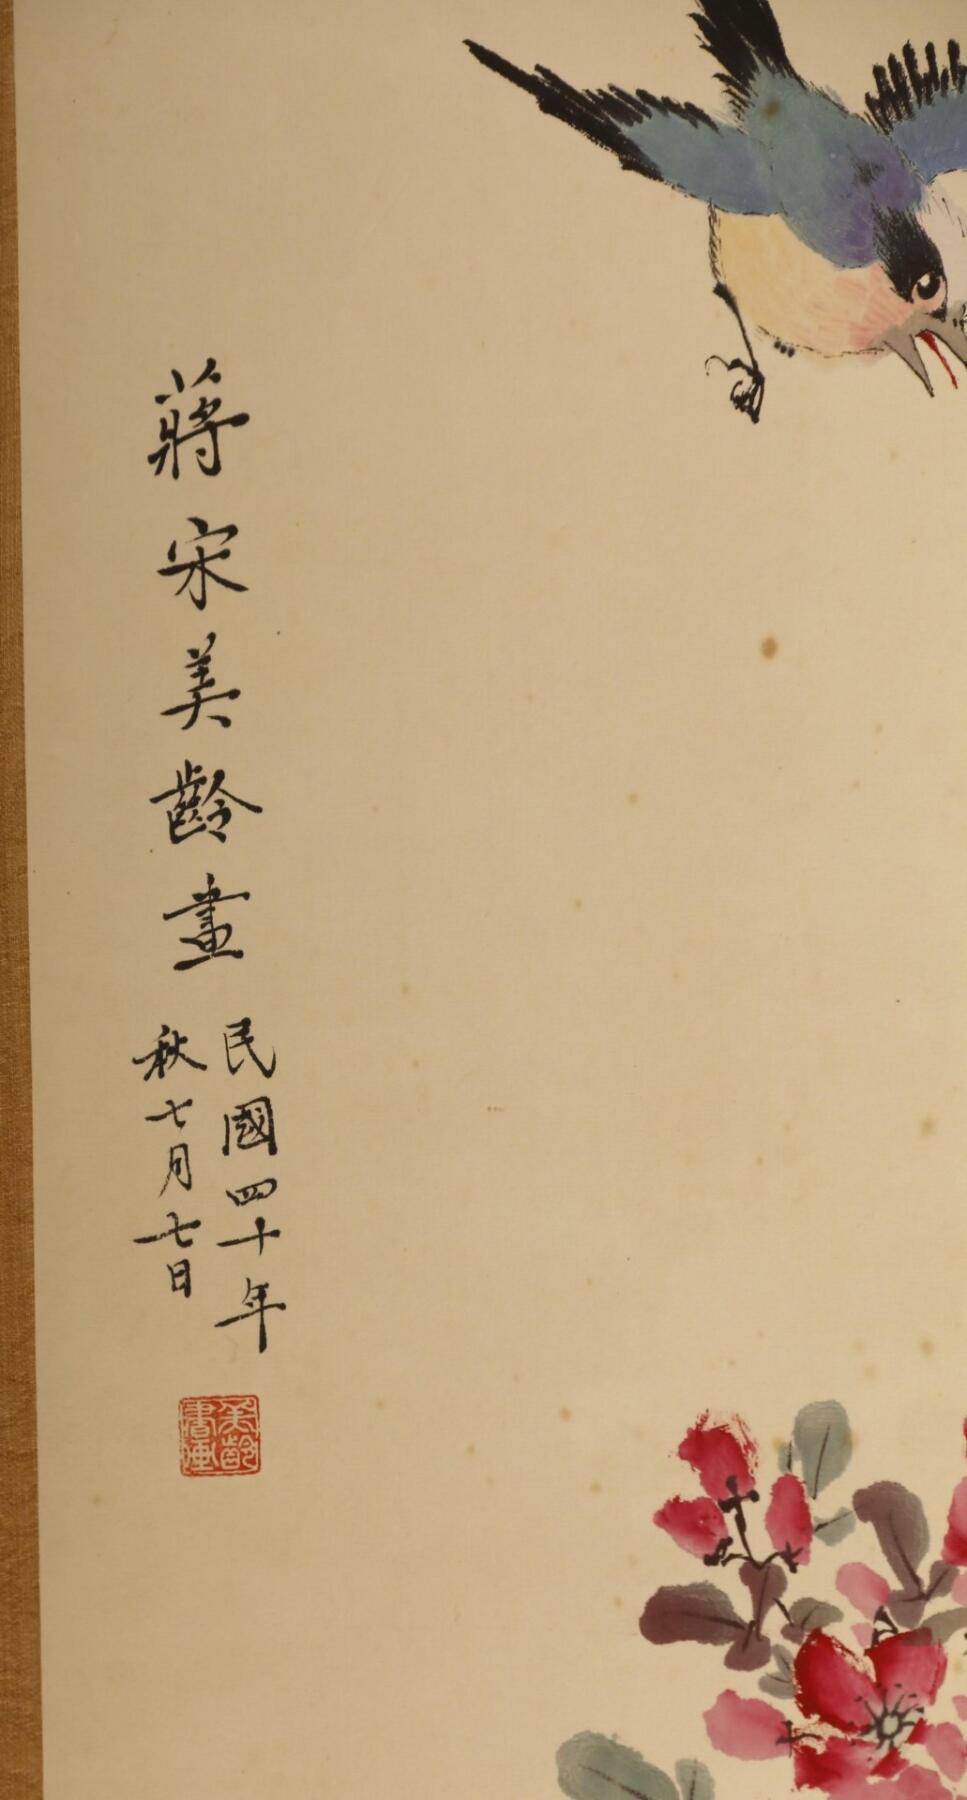 蔣宋美齡畫
民國四十年
秋七月七日
美齡
書画